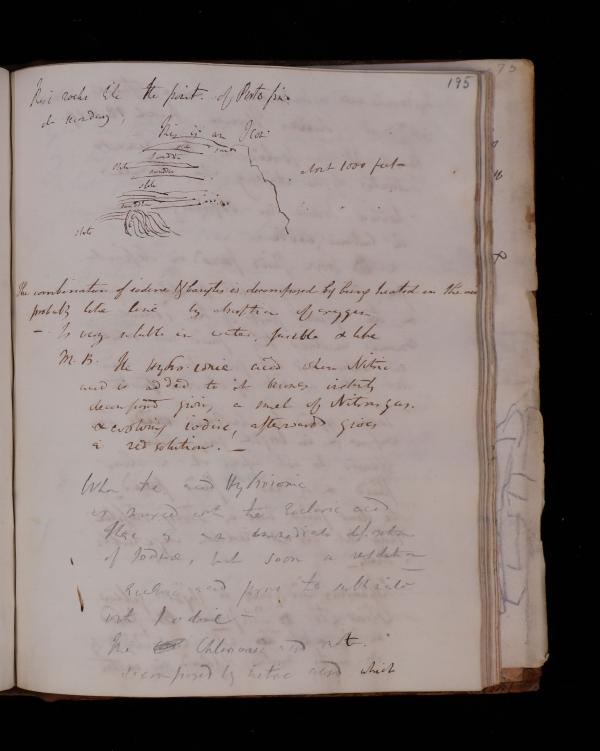 195
75
rocks like the point of Porto fin
& secondary;
This is an
slate
sandst
slate
slate
about 1000 feet
slate
The combination of iodine & barytes is decomposed by being heated in the air
probably like lime by absorption of oxygen
— Is very soluble in water, fusible & like
M. B. The Hydro-ionic acid when Nitric
acid is added to it becomes instantly
decomposed giving a smell of Nitrous gas.
& evolving iodine, afterward gives
a red solution. —
When the acid Hydroionic
is mixed with the acid
there is an immediate deposition
of Iodine, but soon a
acid to
with Iodine —
The Chlorionic acid not
decomposed by nitric acid which